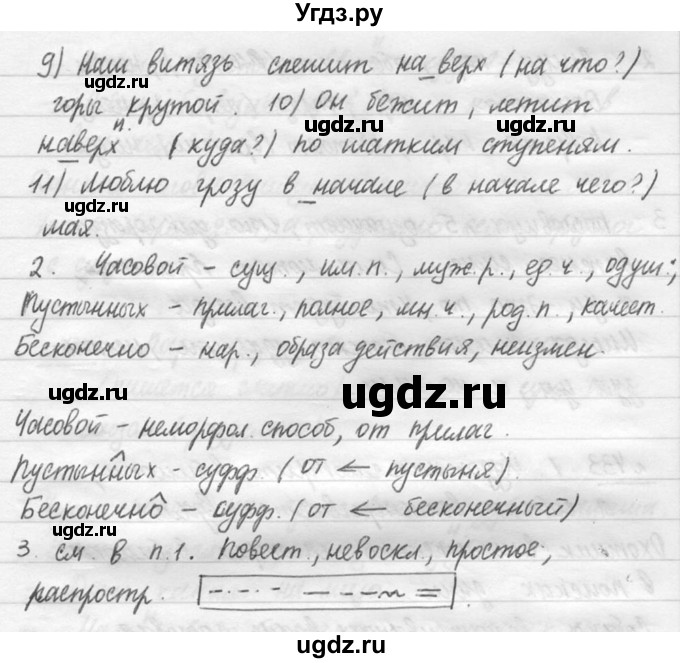 Угдз.ру
9) Наш витязь спешит на_верх (на что?)
ugdz.ru ugdz.ru
горы крутой. 10) Он бежит, летит
ugdz.ru
п.
наверх (куда?) по шатким ступеням.
11) Люблю грозу в_начале (в начале чего?)
ugdz.ru
мая.
2. Часовой – сущ., им.п., муж.р., ед.ч., одуш.;
Пустынных – прилаг., полное, мн.ч., род.п., качест.
Бесконечно – нар., образа действия, неизмен.
ugdz.ru ugdz.ru ugdz.ru
Часовой – неморфол. способ, от прилаг.
Пустынных – суфф. (от ← пустыня)
Бесконечно – суфф. (от ← бесконечный)
ugdz.ru ugdz.ru
3. см. в п.1. Повест., невоскл., простое,
распростр.
ugdz.ru
ugdz.ru